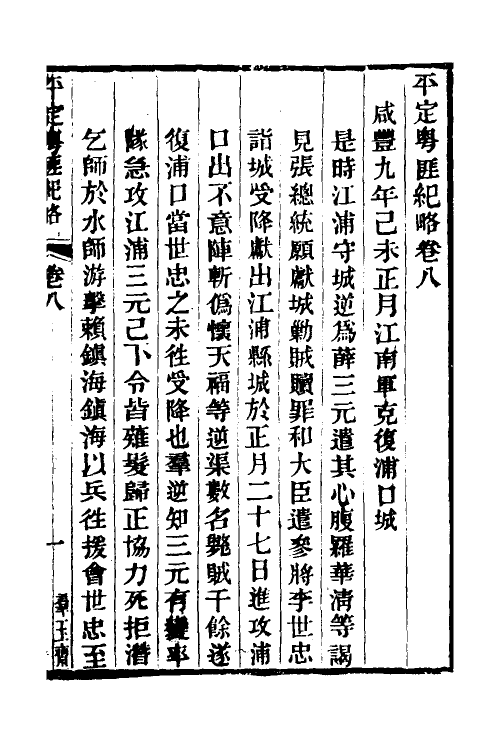 平定粵匪紀略卷八
咸豐九年己未正月江南軍克復浦口城
是時江浦守城逆爲薛三元遣其心腹羅華清等謁
見張總統願獻城勦賊贖罪和大臣遣參將李世忠
詣城受降獻出江浦縣城於正月二十七日進攻浦
口出不意陣斬僞懷天福等逆渠數名斃賊千餘遂
復浦口當世忠之未徃受降也羣逆知三元有變率
隊急攻江浦三元己下令皆薙髮歸正協力死拒潛
乞師於水師游擊賴鎮海鎮海以兵徃援會世忠至
平定粵匪紀略
卷八
一
羣玉齋